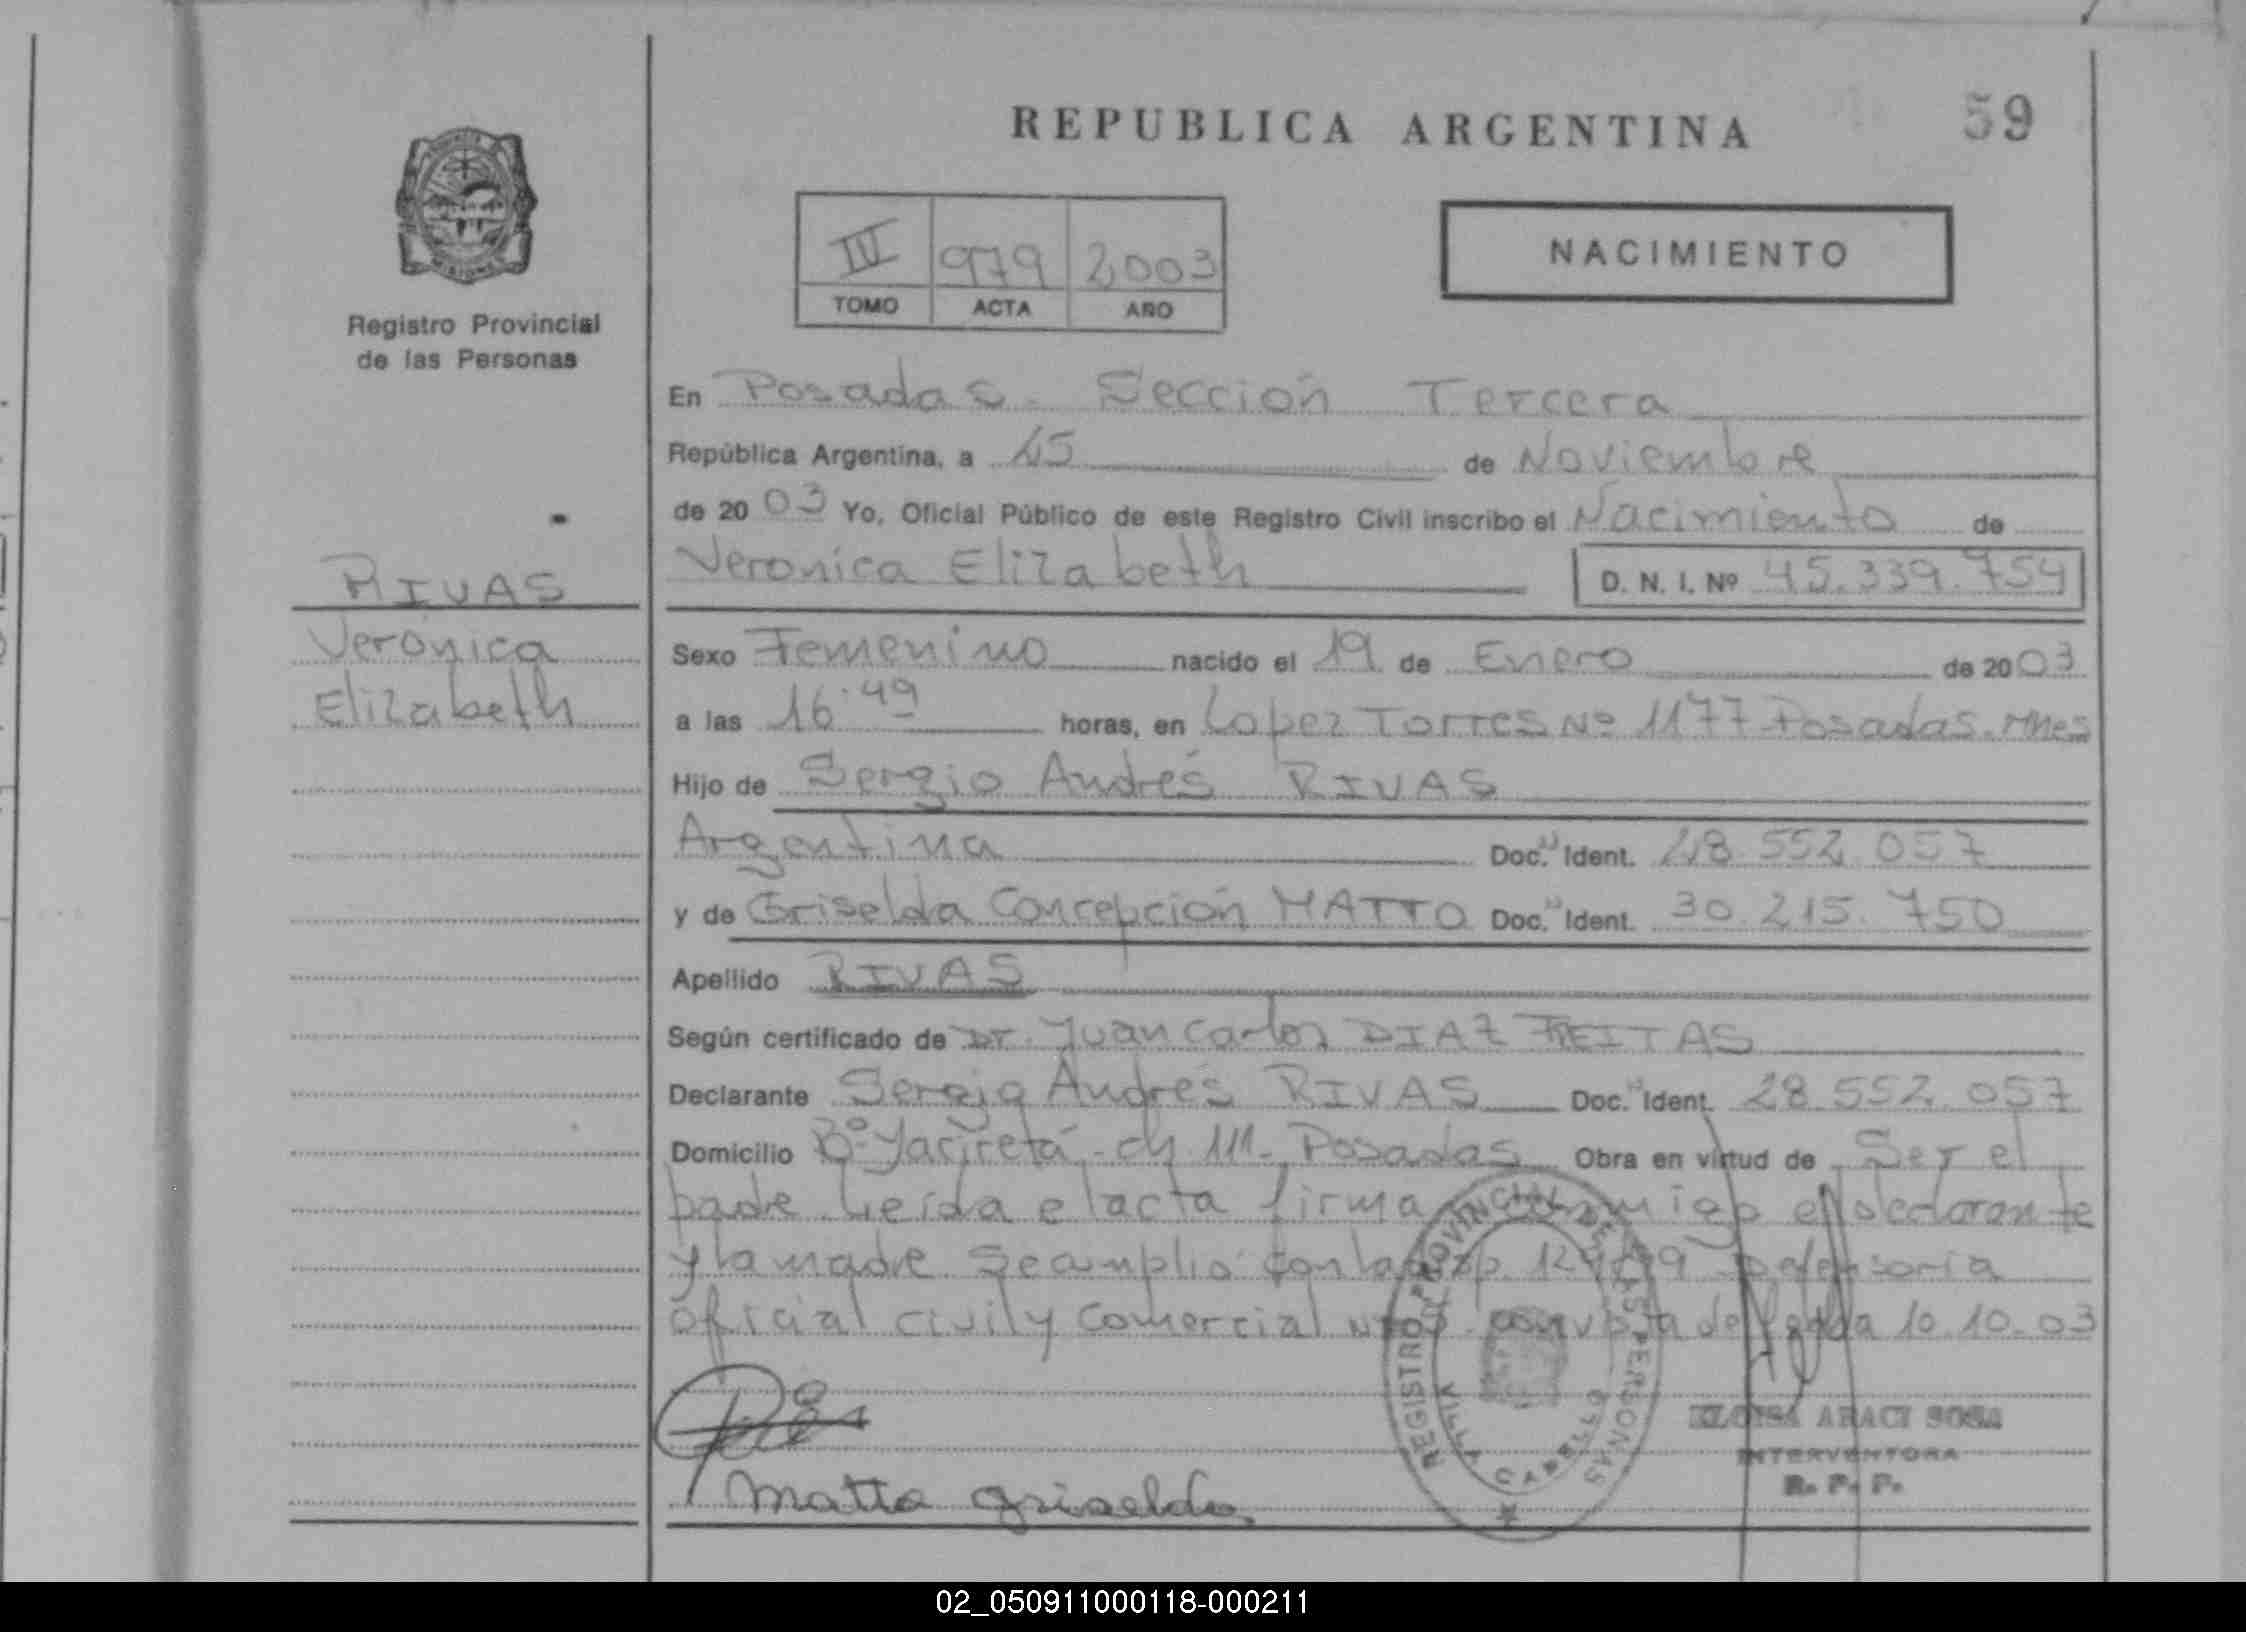 REPUBLICA ARGENTINA
59
PROVINCIA
MISIONES
Registro Provincial
de las Personas
III 979 2003
TOMO ACTA AÑO
NACIMIENTO
En Posadas. Sección Tercera
República Argentina, a 45 de Noviembre
de 2003 Yo, Oficial Público de este Registro Civil inscribo el Nacimiento de
Veronica Elizabeth D. N. I. Nº 45.339.754
RIVAS
Verónica
Elizabeth
Sexo Femenino nacido el 19 de Enero de 2003
a las 16:49 horas, en Lopez Torres Nº 1177 Posadas. Mnes
Hijo de Sergio Andrés RIVAS
Argentina Doc. Ident. 28.552.057
y de Griselda Concepción MATTO Doc. Ident. 30.215.750
Apellido RIVAS
Según certificado de Dr. Juan Carlos DIAZ FREITAS
Declarante Sergio Andrés RIVAS Doc. Ident. 28.552.057
Domicilio Bº Yaciretá - ch 111 - Posadas Obra en virtud de Ser el
padre Leída el acta firma conmigo el declarante
y la madre Se amplió con la 129 Defensoria
Oficial civil y Comercial de fecha 10.10.03
REGISTRO PROVINCIAL DE LAS PERSONAS
VILLA CABELLO
ELOISA ARACI SOSA
INTERVENTORA
R. P. P.
Matto Griselda
02_050911000118-000211